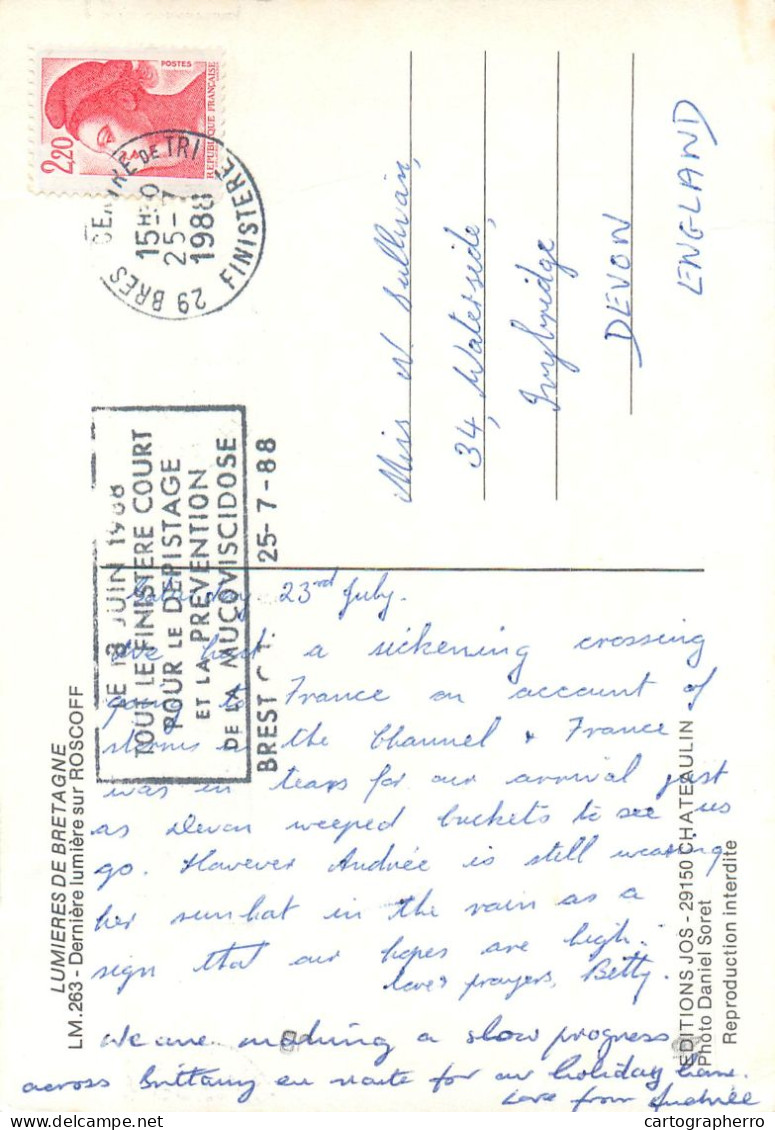 POSTES
2,20
REPUBLIQUE FRANÇAISE
29 BRES CENTRE DE TRI
15H 0
25-7
1988
FINISTERE
LE 18 JUIN 1988
TOUT LE FINISTERE COURT
POUR LE DEPISTAGE
ET LA PREVENTION
DE LA MUCOVISCIDOSE
BREST C.T. 25-7-88
Miss N Sullivan,
34, Waterside,
Ivybridge
DEVON
ENGLAND
Saturday 23rd July.
We had a sickening crossing
going to France on account of
storms in the Channel & France
was in tears for our arrival just
as Devon weeped buckets to see us
go. However Andrée is still wearing
her sunhat in the rain as a
sign that our hopes are high.
Love & prayers, Betty.
We are making a slow progress
across Brittany en route for our holiday home.
Love from Andrée
LUMIERES DE BRETAGNE
LM.263 - Dernière lumière sur ROSCOFF
EDITIONS JOS - 29150 CHATEAULIN
Photo Daniel Soret
Reproduction interdite
cartographerro